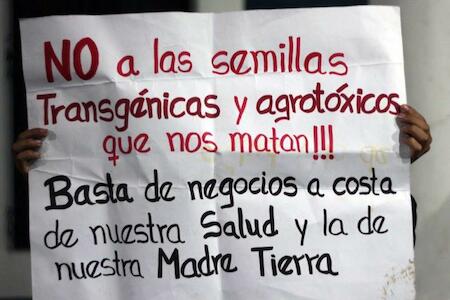 NO a las semillas
Transgénicas y agrotóxicos
que nos matan!!!
Basta de negocios a costa
de nuestra Salud y la de
nuestra Madre Tierra